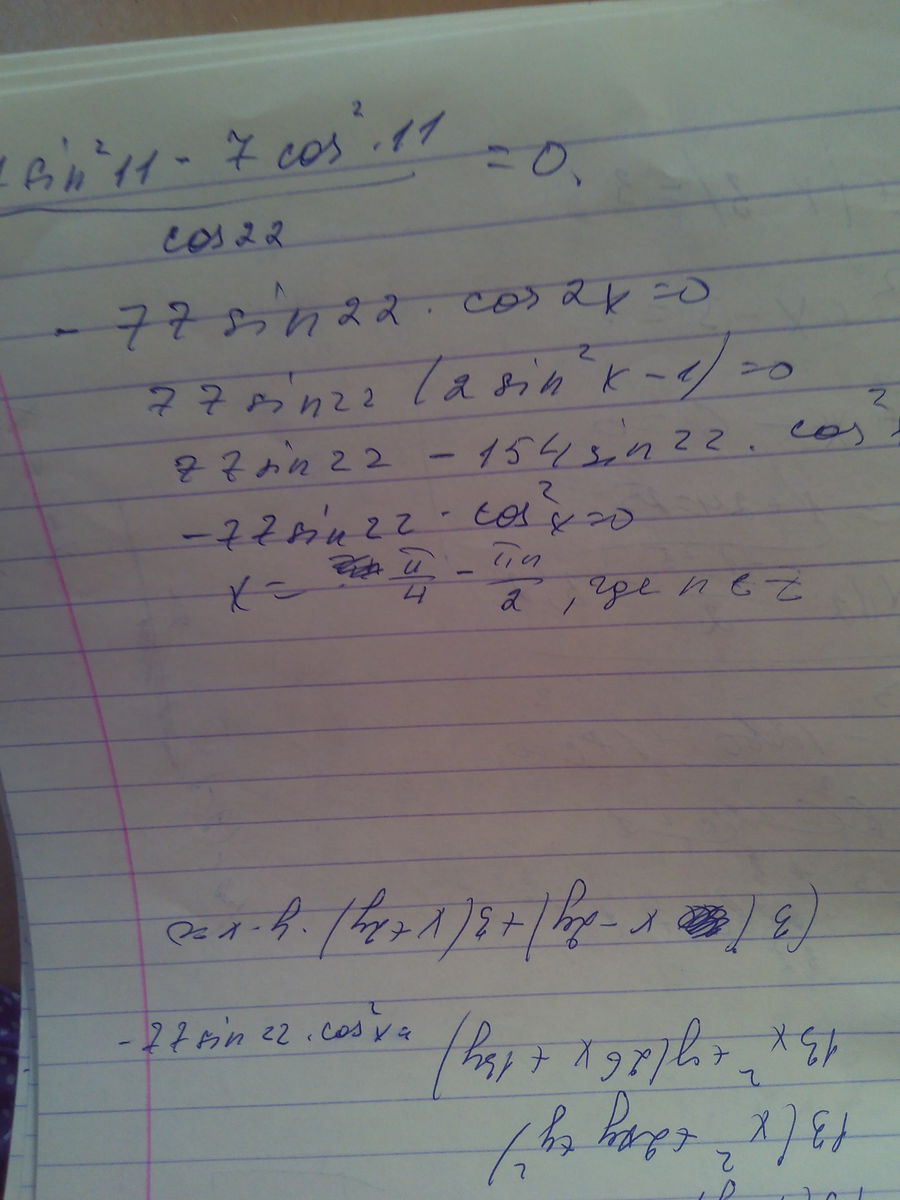 sin² 11 - 7 cos² · 11 = 0.
cos 22
- 77 sin 22 · cos 2x = 0
77 sin 22 (2 sin² x - 1) = 0
77 sin 22 - 154 sin 22 · cos²
- 77 sin 22 · cos² x = 0
x = π/4 - πn/2 , где n ∈ Z
(3 (x - 2y) + 3 (x + 2y) · y · x =
- 77 sin 22 · cos² x =
13x² + y (26x + 13y)
13 (x² + 2xy + y²)